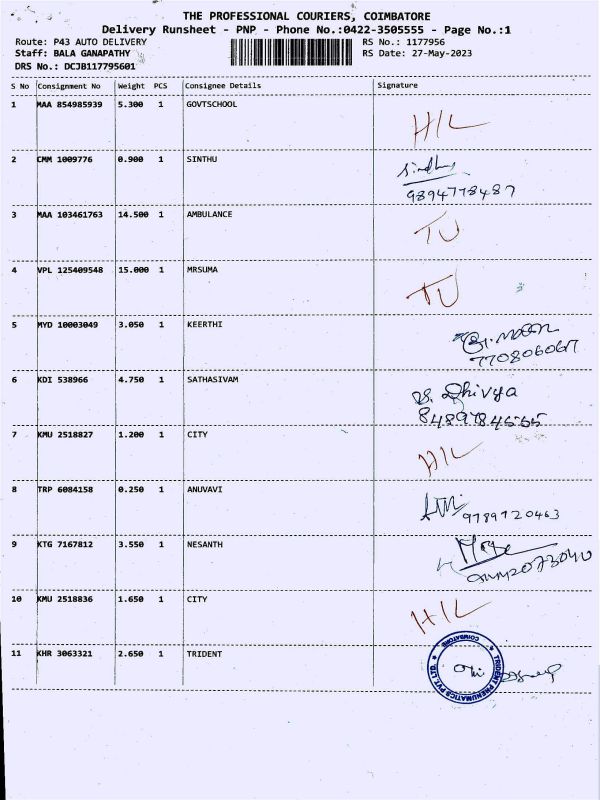 THE PROFESSIONAL COURIERS, COIMBATORE
Delivery Runsheet - PNP - Phone No.:0422-3505555 - Page No.:1
Route: P43 AUTO DELIVERY RS No.: 1177956
Staff: BALA GANAPATHY RS Date: 27-May-2023
DRS No.: DCJB117795601
S No Consignment No Weight PCS Consignee Details Signature
1 MAA 854985939 5.300 1 GOVTSCHOOL H/L
2 CMM 1009776 0.900 1 SINTHU Sindhu
9894778487
3 MAA 103461763 14.500 1 AMBULANCE TU
4 VPL 125409548 15.000 1 MRSUMA TU
5 MYD 10003049 3.050 1 KEERTHI
770806067
6 KDI 538966 4.750 1 SATHASIVAM S. Dhivya
8489784565
7 KMU 2518827 1.200 1 CITY H/L
8 TRP 6084158 0.250 1 ANUVAVI
9789920463
9 KTG 7167812 3.550 1 NESANTH
10 KMU 2518836 1.650 1 CITY H/L
11 KHR 3063321 2.650 1 TRIDENT
TRIDENT PNEUMATICS PVT. LTD.
COIMBATORE